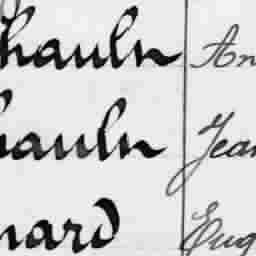 hauln An
hauln Jean
nard Eug